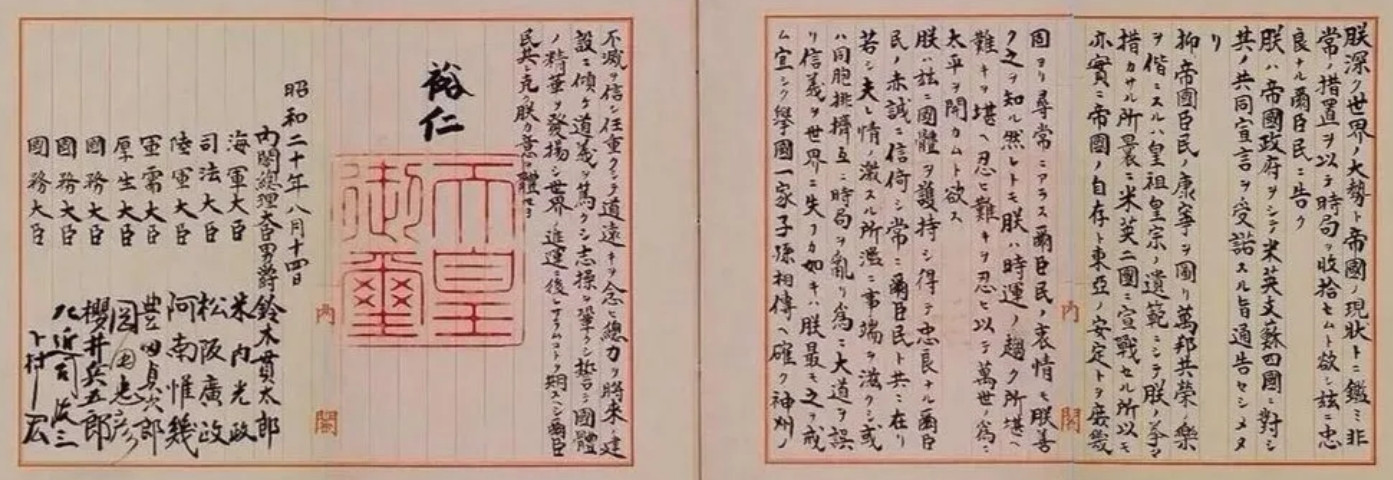 朕深ク世界ノ大勢ト帝國ノ現狀トニ鑑ミ非
常ノ措置ヲ以テ時局ヲ收拾セムト欲シ茲ニ忠
良ナル爾臣民ニ告ク
朕ハ帝國政府ヲシテ米英支蘇四國ニ對シ
其ノ共同宣言ヲ受諾スル旨通告セシメタ
リ
抑帝國臣民ノ康寧ヲ圖リ萬邦共榮ノ樂
ヲ偕ニスルハ皇祖皇宗ノ遺範ニシテ朕ノ拳〻
措カサル所曩ニ米英二國ニ宣戰セル所以モ
亦實ニ帝國ノ自存ト東亞ノ安定トヲ庶幾
内閣
固ヨリ尋常ニアラス爾臣民ノ衷情モ朕善
ク之ヲ知ル然レトモ朕ハ時運ノ趨ク所堪ヘ
難キヲ堪ヘ忍ヒ難キヲ忍ヒ以テ萬世ノ爲ニ
太平ヲ開カムト欲ス
朕ハ茲ニ國體ヲ護持シ得テ忠良ナル爾臣
民ノ赤誠ニ信倚シ常ニ爾臣民ト共ニ在リ
若シ夫レ情ノ激スル所濫ニ事端ヲ滋クシ或
ハ同胞排擠互ニ時局ヲ亂リ爲ニ大道ヲ誤
リ信義ヲ世界ニ失フカ如キハ朕最モ之ヲ戒
ム宜シク擧國一家子孫相傳ヘ確ク神州ノ
不滅ヲ信シ任重クシテ道遠キヲ念ヒ總力ヲ將來ノ建
設ニ傾ケ道義ヲ篤クシ志操ヲ鞏クシ誓テ國體
ノ精華ヲ發揚シ世界ノ進運ニ後レサラムコトヲ期スヘシ爾臣
民其レ克ク朕カ意ヲ體セヨ
裕仁
天皇御璽
内閣
昭和二十年八月十四日
内閣總理大臣男爵 鈴木貫太郎
海軍大臣 米内光政
司法大臣 松阪廣政
陸軍大臣 阿南惟幾
軍需大臣 豊田貞次郎
厚生大臣 岡田忠彦
國務大臣 櫻井兵五郎
國務大臣 左近司政三
國務大臣 下村宏